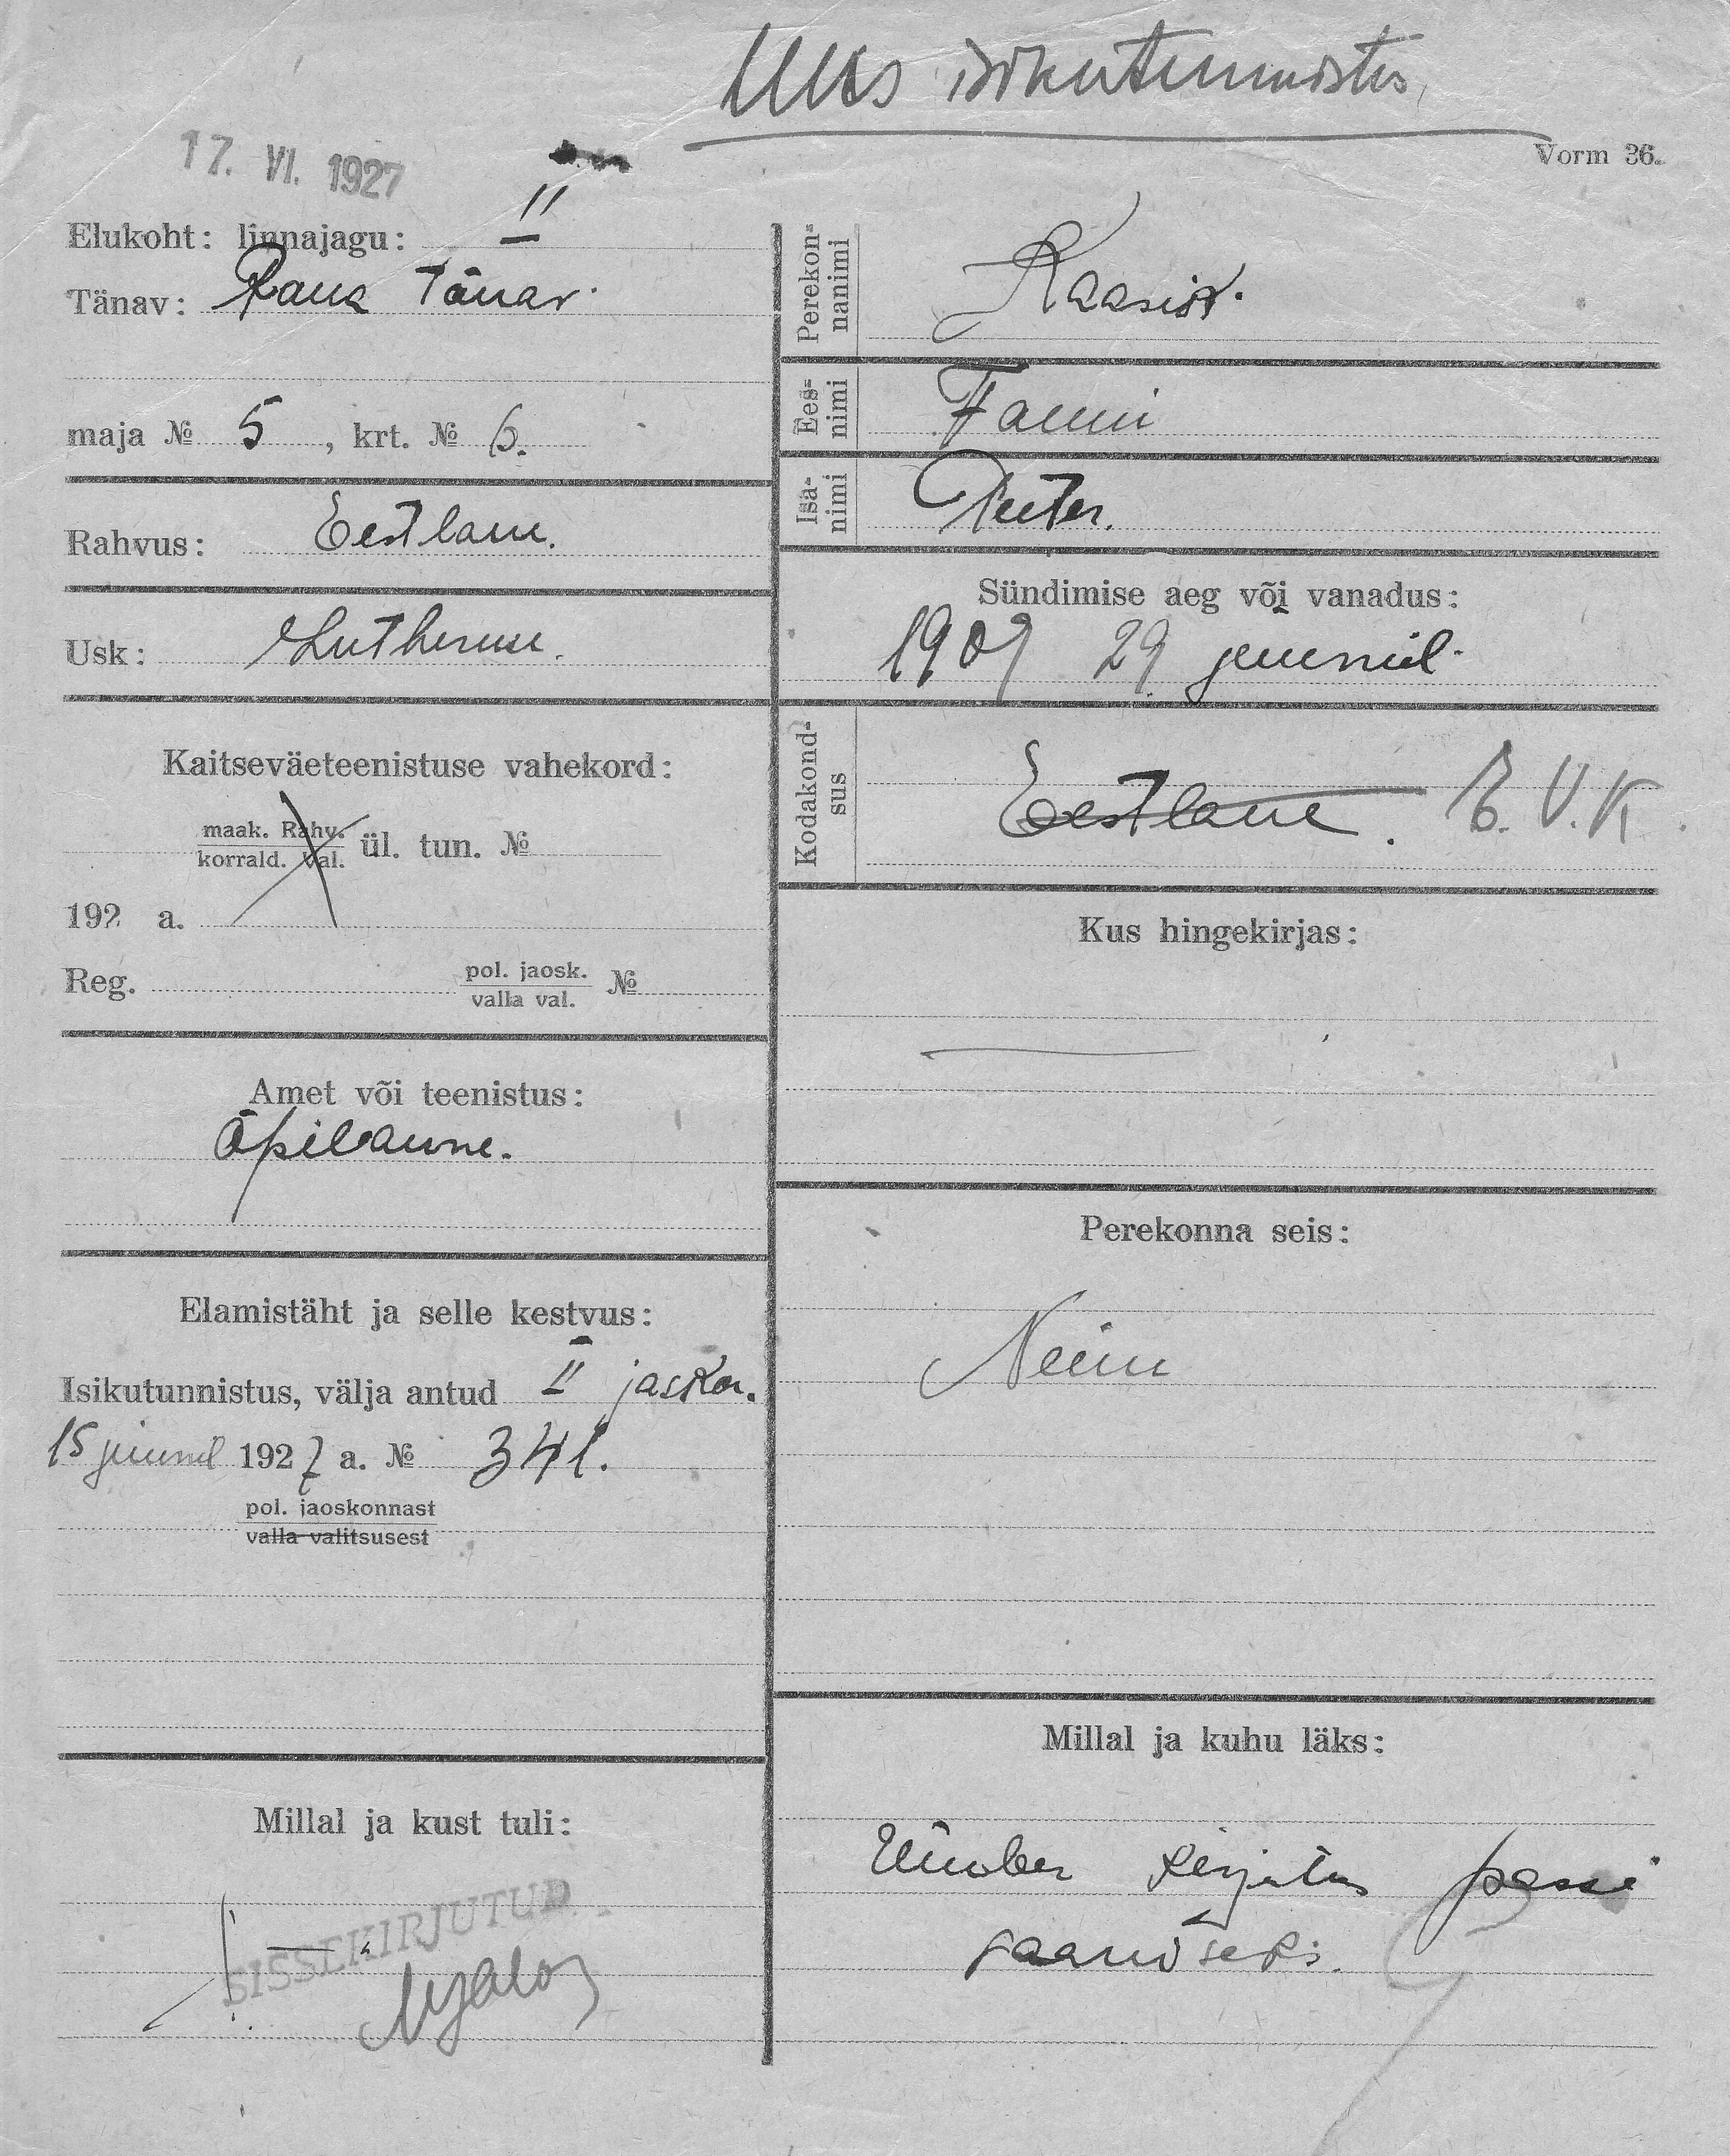 Uus isikutunnistus
17. VI. 1927
Vorm 36.
Elukoht: linnajagu: II
Tänav: Raua Tänav.
maja № 5, krt. № 6.
Rahvus: Eestlane.
Usk: Lutheruse.
Kaitseväeteenistuse vahekord:
maak. Rahv.
korrald. Val. ül. tun. №
192 a.
Reg. pol. jaosk.
valla val. №
Amet või teenistus:
Õpilanne.
Elamistäht ja selle kestvus:
Isikutunnistus, välja antud II jaskon.
15 juunil 1927 a. № 341.
pol. jaoskonnast
valla valitsusest
Millal ja kust tuli:
SISSEKIRJUTUD
Perekonnanimi Kaasik.
Eesnimi Fanni
Isanimi Peeter.
Sündimise aeg või vanadus:
1909 29 juunil.
Kodakondsus Eestlane. E.V.K.
Kus hingekirjas:
Perekonna seis:
Neiu
Millal ja kuhu läks:
Ümber kirjutus passi
saamiseks.